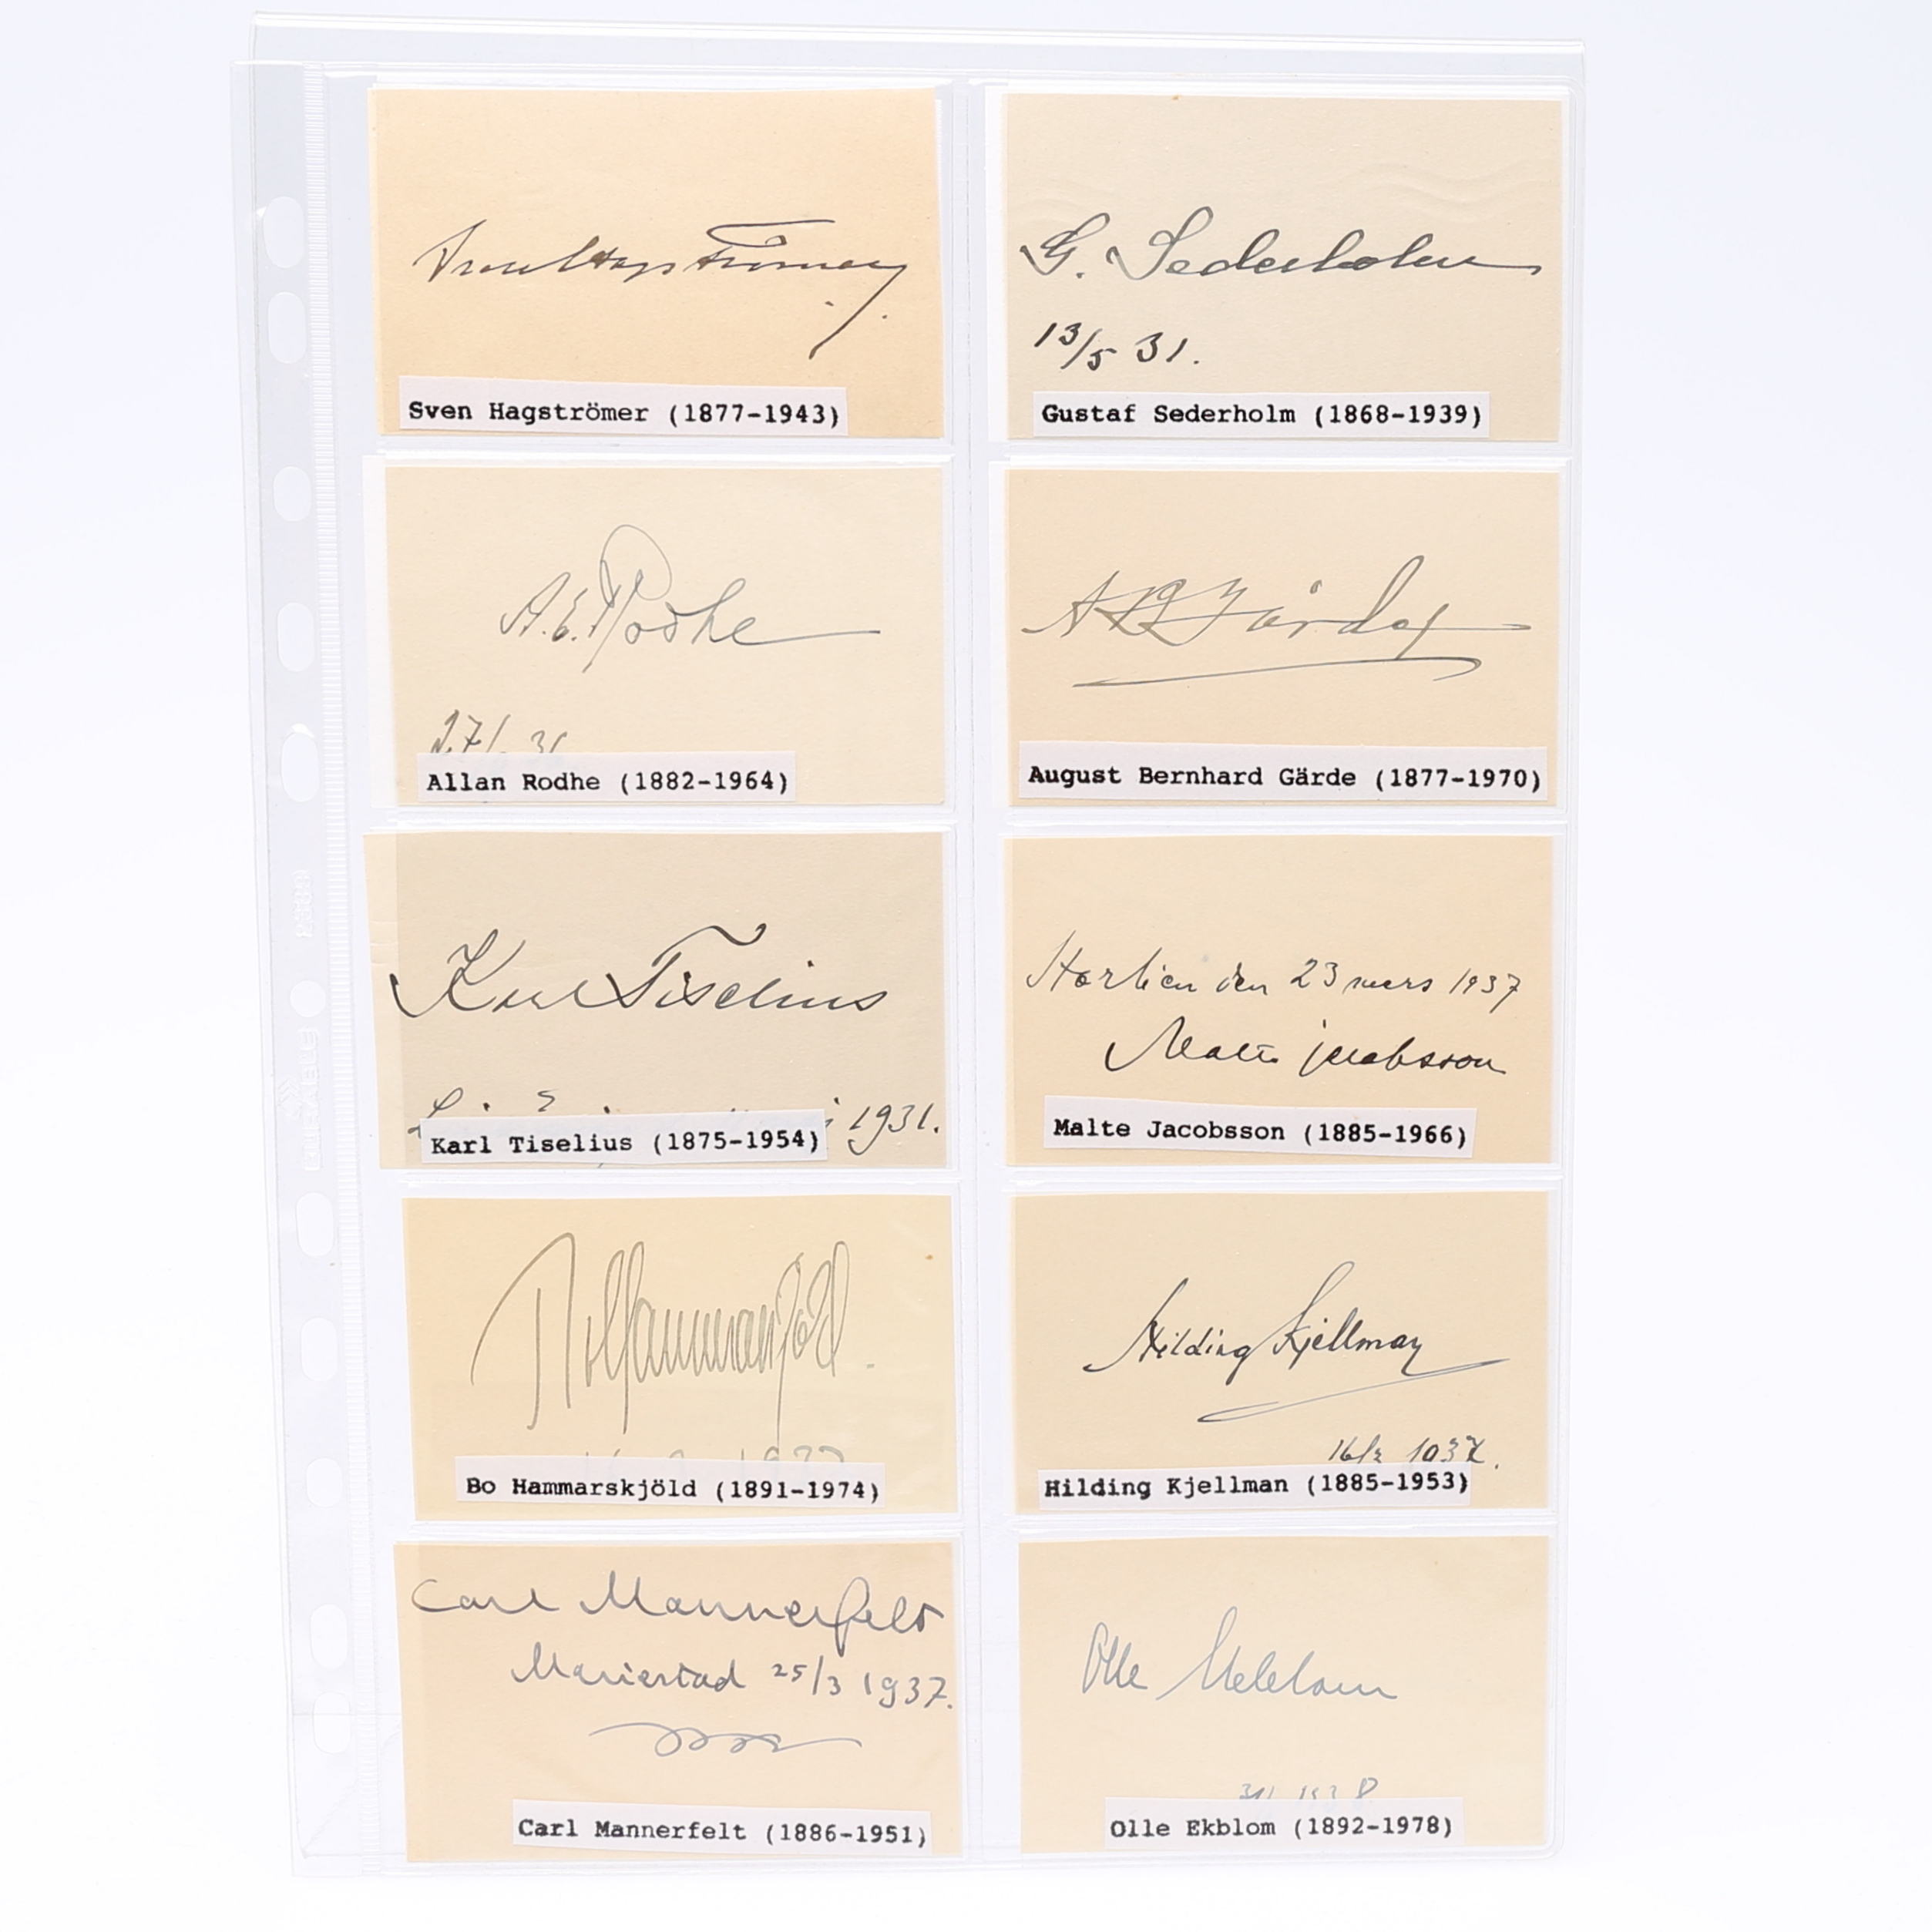 Sven Hagströmer
Sven Hagströmer (1877-1943)
G. Sederholm
13/5 31.
Gustaf Sederholm (1868-1939)
A. E. Rodhe
Allan Rodhe (1882-1964)
A B Gärde
August Bernhard Gärde (1877-1970)
Karl Tiselius
1931.
Karl Tiselius (1875-1954)
Storlien den 23 mars 1937
Malte Jacobsson
Malte Jacobsson (1885-1966)
Bo Hammarskjöld
Bo Hammarskjöld (1891-1974)
Hilding Kjellman
Hilding Kjellman (1885-1953)
Carl Mannerfelt
Mariestad 25/3 1937.
Carl Mannerfelt (1886-1951)
Olle Ekblom
Olle Ekblom (1892-1978)